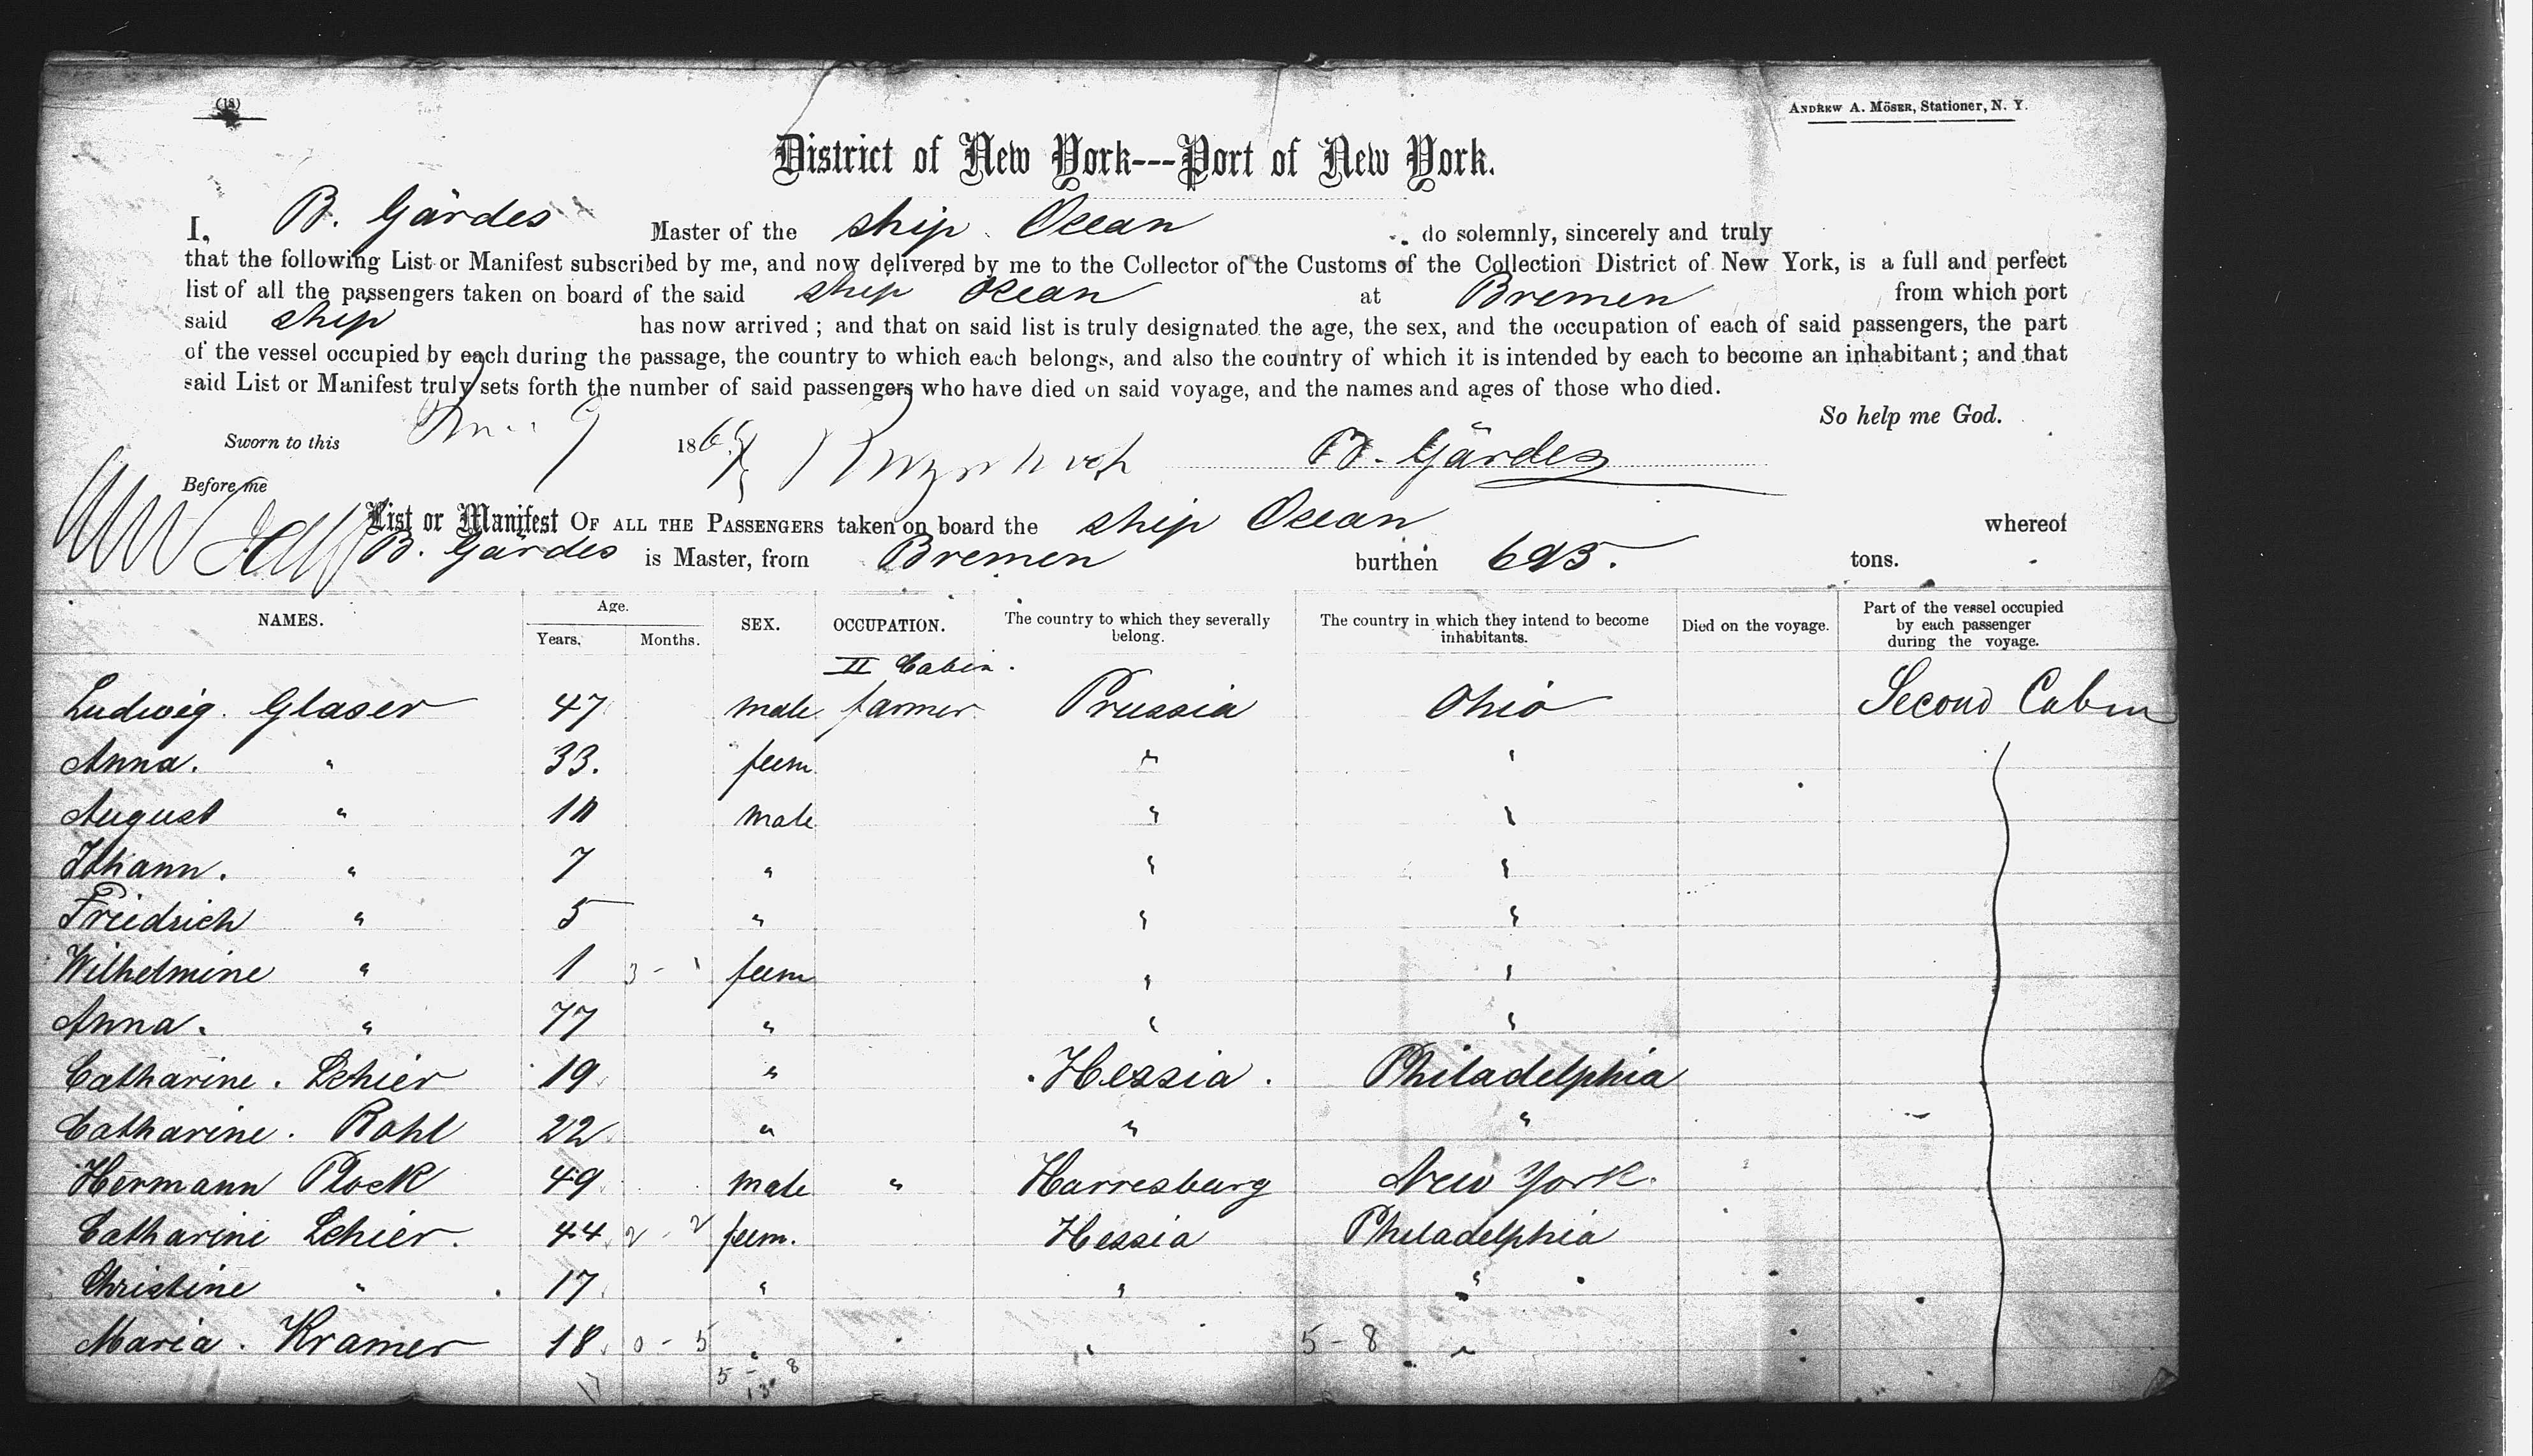 (18)
ANDREW A. MÖSER, Stationer, N. Y.
District of New York---Port of New York.
I, B. Gärdes Master of the ship Ocean do solemnly, sincerely and truly
that the following List or Manifest subscribed by me, and now delivered by me to the Collector of the Customs of the Collection District of New York, is a full and perfect
list of all the passengers taken on board of the said ship Ocean at Bremen from which port
said ship has now arrived; and that on said list is truly designated the age, the sex, and the occupation of each of said passengers, the part
of the vessel occupied by each during the passage, the country to which each belongs, and also the country of which it is intended by each to become an inhabitant; and that
said List or Manifest truly sets forth the number of said passengers who have died on said voyage, and the names and ages of those who died.
So help me God.
Sworn to this 9 186 B. Gärdes
Before me
List or Manifest OF ALL THE PASSENGERS taken on board the ship Ocean whereof
B. Gärdes is Master, from Bremen burthen tons.
NAMES. Age. Years. Months. SEX. OCCUPATION. The country to which they severally belong. The country in which they intend to become inhabitants. Died on the voyage. Part of the vessel occupied by each passenger during the voyage.
II Cabin.
Ludwig Glaser 47 male farmer Prussia Ohio Second Cabin
Anna. " 33. feem " "
August " male " "
Johann. " 7 " " "
Friedrich " 5 " " "
Wilhelmine " 1 3 - 1 feem " "
Anna. " 77 " " "
Catharine. Schier 19 " Hessia. Philadelphia
Catharine. Rohl 22 " " "
Hermann Plock 49 male " Harresburg New York.
Catharine Schier. 44 2 - 2 feem. Hessia Philadelphia
Christine " 17 " " "
Maria. Kramer 18 0 - 5 " " 5 - 8 "
5 - 8
13